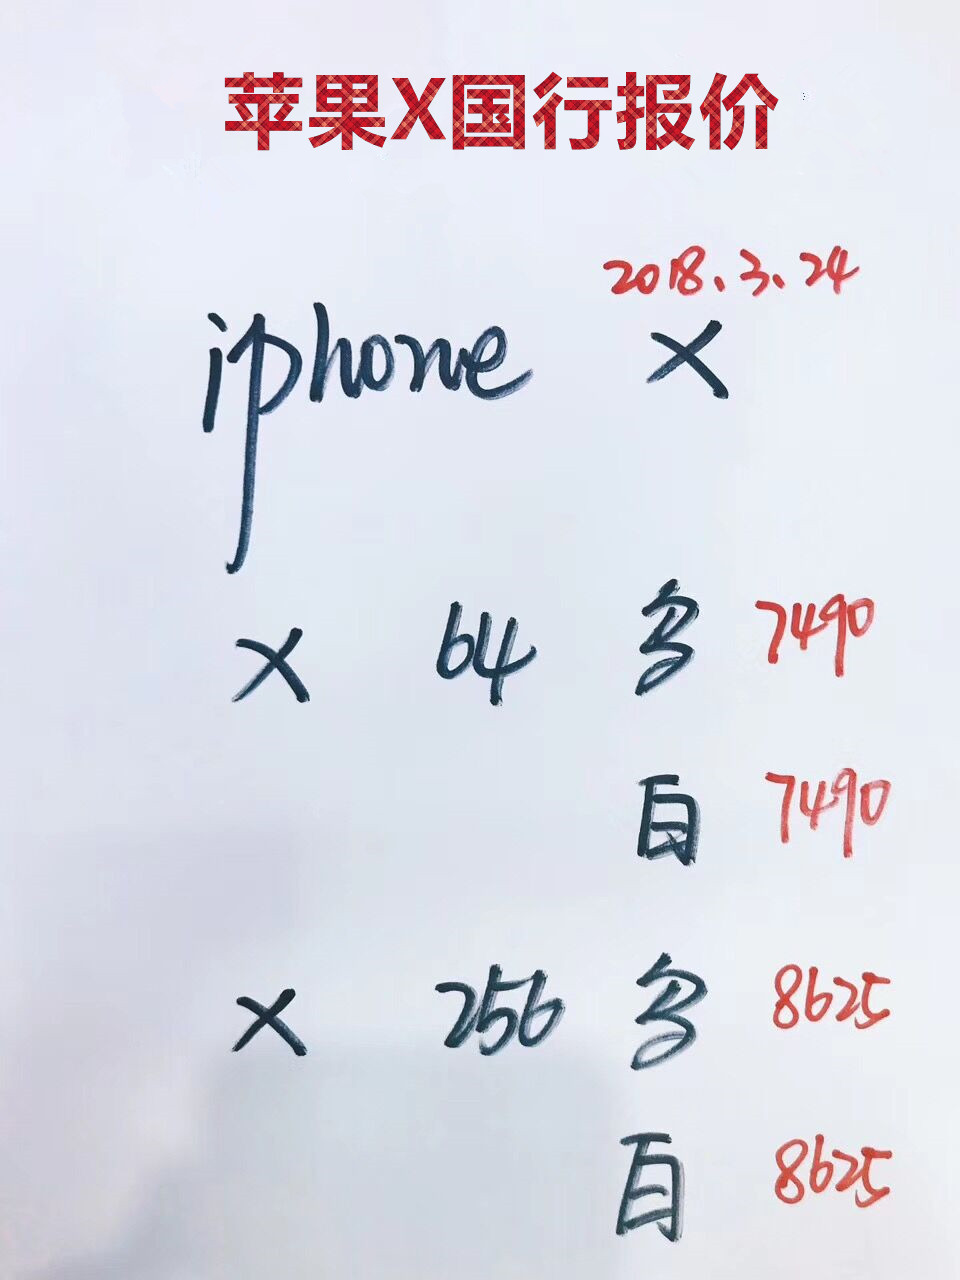 苹果X国行报价
2018.3.24
iphone X
X 64 多 7490
白 7490
X 256 多 8625
白 8625